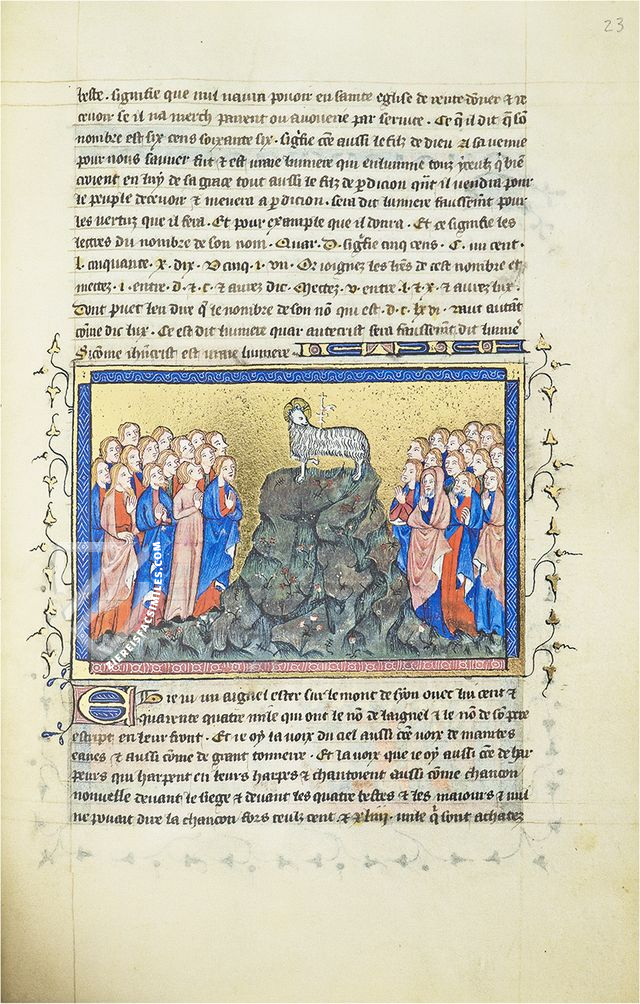 23
beste . signifie que nul naura pouoir en sainte eglise de rente dõner ⁊ re
ceuoir se il na merch parent ou auouerie par seruice . Ce q̃ il dit q̃ sõ
nombre est six cens soixante six . sigñfie cõe aussi le filz de dieu a sa venue
pour nous sauuer fut ⁊ est vraie lumiere qui enlumine touz yceulz q̃ biẽ
croient en luy de sa grace tout aussi le filz de ꝑdicion qñt il vendra pour
le peuple deceuoir ⁊ mener a ꝑdicion . sera dit lumiere faussem̃t pour
les vertuz que il fera . Et pour example que il donra . Et ce signifie les
lettres du nombre de son nom . Quar . D . sigñfie cinq cens . C . un cent .
l . cinquante . x . dix . v cinq . i . vn . Or ioignez les lr̃es de cest nombre et
mectez . i . entre . d . ⁊ . c . ⁊ aurez dic . Mectez . v . entre . l . ⁊ . x . ⁊ aurez lux .
Dont puet len dire q̃ le nombre de son nõ qui est . d . c . lx vi . vaut autãt
cõme dic lux . Ce est dit lumiere quar antecrist sera faussem̃t dit lumie
Si cõme ihũcrist est vraie lumiere
ZIEREISFACSIMILES.COM
Et ie vi un aignel ester sur le mont de syon ouec lui cent ⁊
quarente quatre mile qui ont le nõ de laignel ⁊ le nõ de sõ pere
escript en leur front . Et ie oy la voix du ciel aussi cõe voix de maintes
eaues ⁊ aussi cõme de grant tonnerre . Et la voix que ie oy aussi cõe de har
peurs qui harpent en leurs harpes ⁊ chantoient aussi cõme chancon
nouuelle deuant le siege ⁊ deuant les quatre bestes ⁊ les maiours ⁊ nul
ne pouait dire la chancon fors ceulz cent . ⁊ xliiii . mile q̃ sont achatez